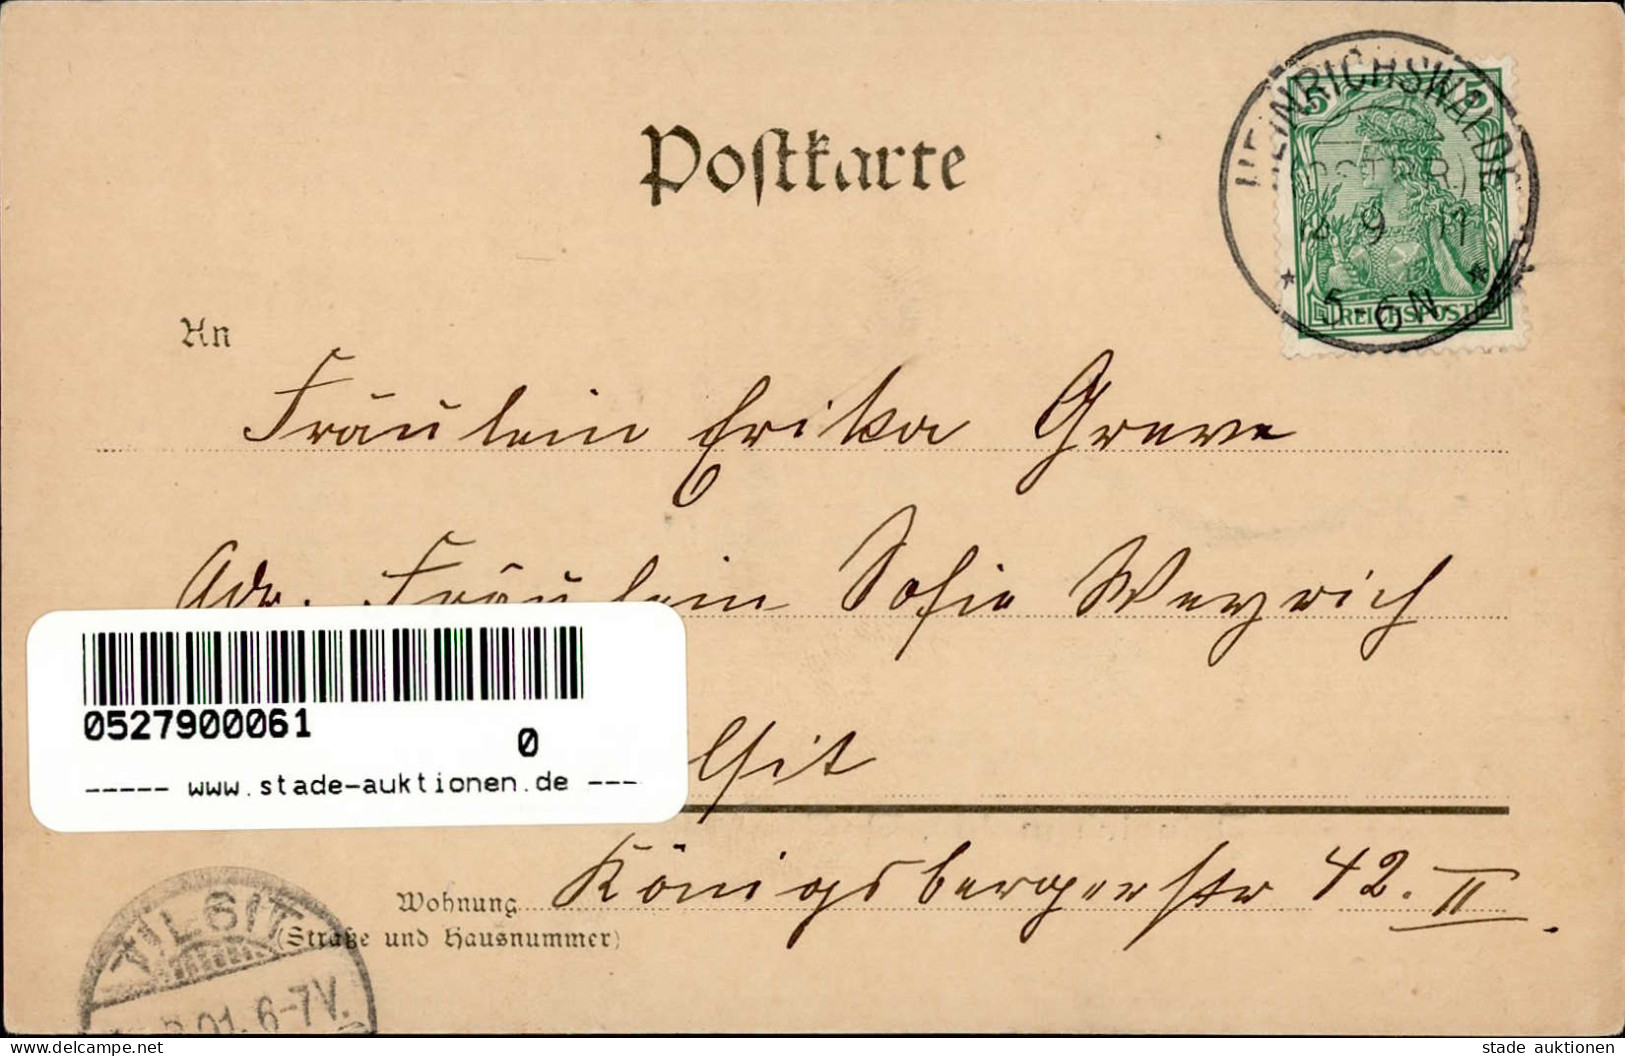 Postkarte
HEINRICHSWALDE
5 5
9
5-6N
REICHSPOST
An
Fräulein Erika Greve
Adr. Fräulein Sofie Weyrich
0527900061
0
----- www.stade-auktionen.de ---
lsit
Wohnung Königsbergerstr 42. II.
(Straße und Hausnummer)
TILSIT
01. 6-7V.
Delcampe.net
stade auktionen